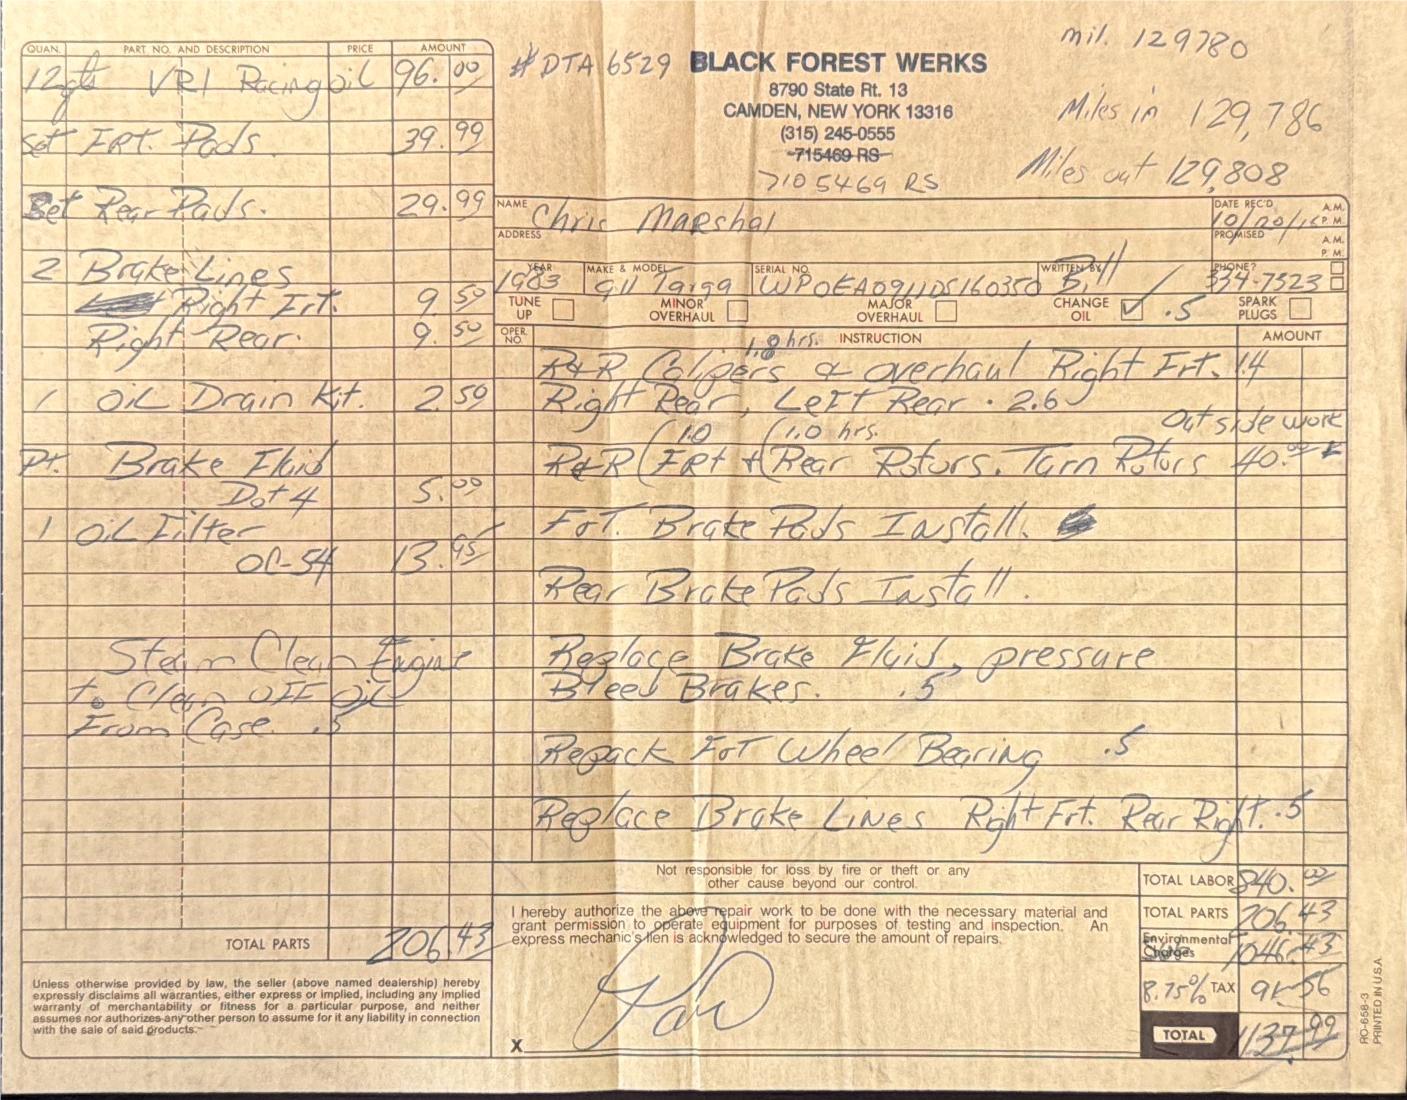 QUAN. PART NO. AND DESCRIPTION PRICE AMOUNT
12qts VR1 Racing oil 96.00
set FRT. Pads. 39.99
Set Rear Pads. 29.99
2 Brake Lines
Right Frt. 9.50
Right Rear. 9.50
1 OIL Drain Kit. 2.50
Pt. Brake Fluid
Dot 4 5.00
1 OIL Filter
OC-54 13.95
Steam Clean Engine
to Clean OFF OIL
From Case. .5
TOTAL PARTS 206.43
Unless otherwise provided by law, the seller (above named dealership) hereby
expressly disclaims all warranties, either express or implied, including any implied
warranty of merchantability or fitness for a particular purpose, and neither
assumes nor authorizes any other person to assume for it any liability in connection
with the sale of said products.
#DTA 6529
BLACK FOREST WERKS
8790 State Rt. 13
CAMDEN, NEW YORK 13316
(315) 245-0555
715469 RS
7105469 RS
mil. 129780
Miles in 129,786
Miles out 129,808
NAME Chris Marshal
DATE REC'D 10/20/16 A.M. P.M.
ADDRESS
PROMISED A.M. P.M.
YEAR 1983 MAKE & MODEL 911 Targa SERIAL NO. WPOEA0911DS160350 WRITTEN BY Bill PHONE? 334-7523
TUNE UP MINOR OVERHAUL MAJOR OVERHAUL CHANGE OIL ✓ .5 SPARK PLUGS
OPER. NO. INSTRUCTION AMOUNT
1.8 hrs.
R&R Calipers & overhaul Right Frt. 1.4
Right Rear, Left Rear. 2.6
Outside work
(1.0 (1.0 hrs.
R&R (FRt + (Rear Rotors. Turn Rotors 40.00
FrT. Brake Pads Install.
Rear Brake Pads Install.
Replace Brake Fluid, pressure
Bleed Brakes. .5
Repack FrT Wheel Bearing .5
Replace Brake Lines Right Frt. Rear Right. .5
Not responsible for loss by fire or theft or any
other cause beyond our control.
I hereby authorize the above repair work to be done with the necessary material and
grant permission to operate equipment for purposes of testing and inspection. An
express mechanic's lien is acknowledged to secure the amount of repairs.
X
TOTAL LABOR 840.00
TOTAL PARTS 206.43
Environmental Charges 1046.43
8.75% TAX 91.56
TOTAL 1137.99
RO-658-3
PRINTED IN U.S.A.